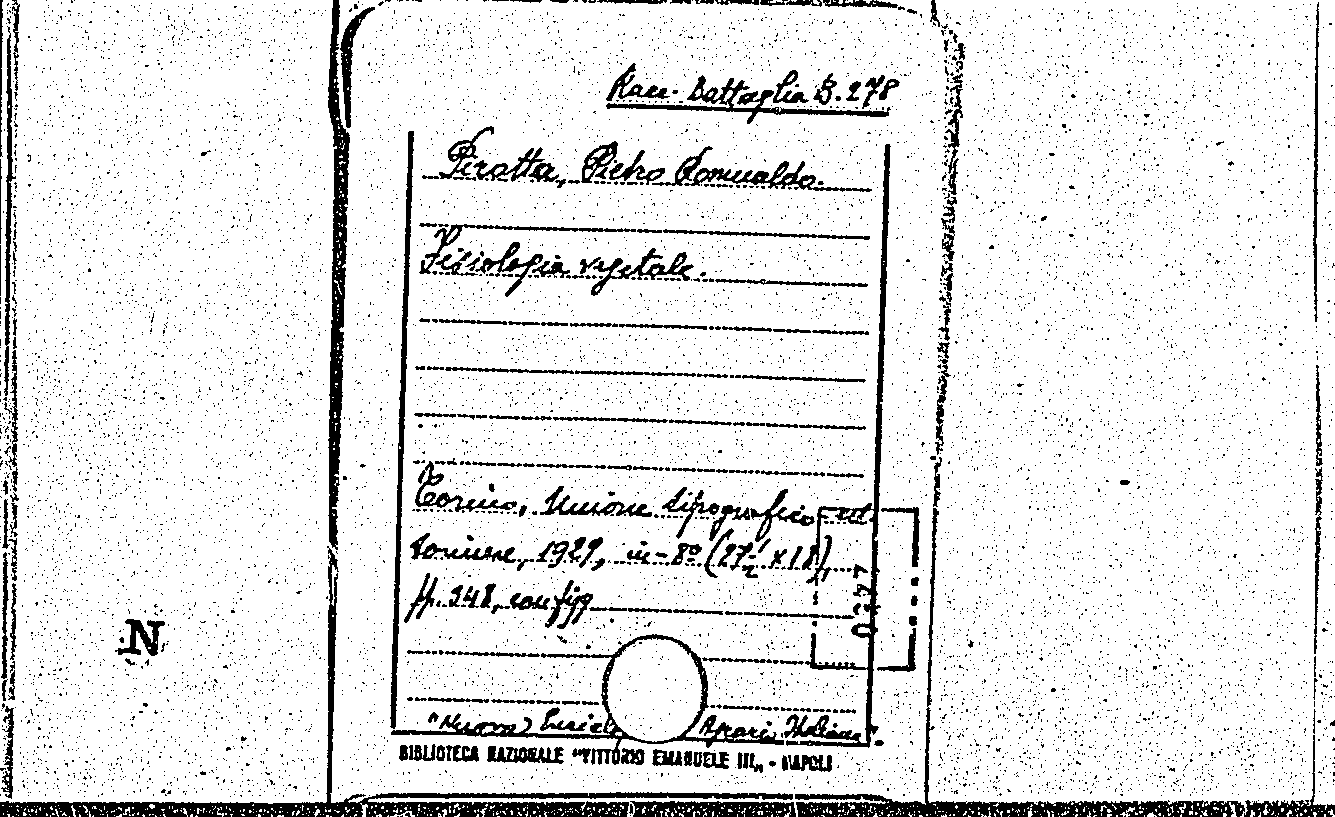 Racc. Battaglia B. 278
Pirotta, Pietro Romualdo.
Fisiologia vegetale.
Torino, Unione tipografico-edi.
torinese, 1929, in-8º (27½ x 18),
pp. 348, con figg
0277
N
"Nuova Encicl Agraria Italiana".
BIBLIOTECA NAZIONALE "VITTORIO EMANUELE III„ - NAPOLI